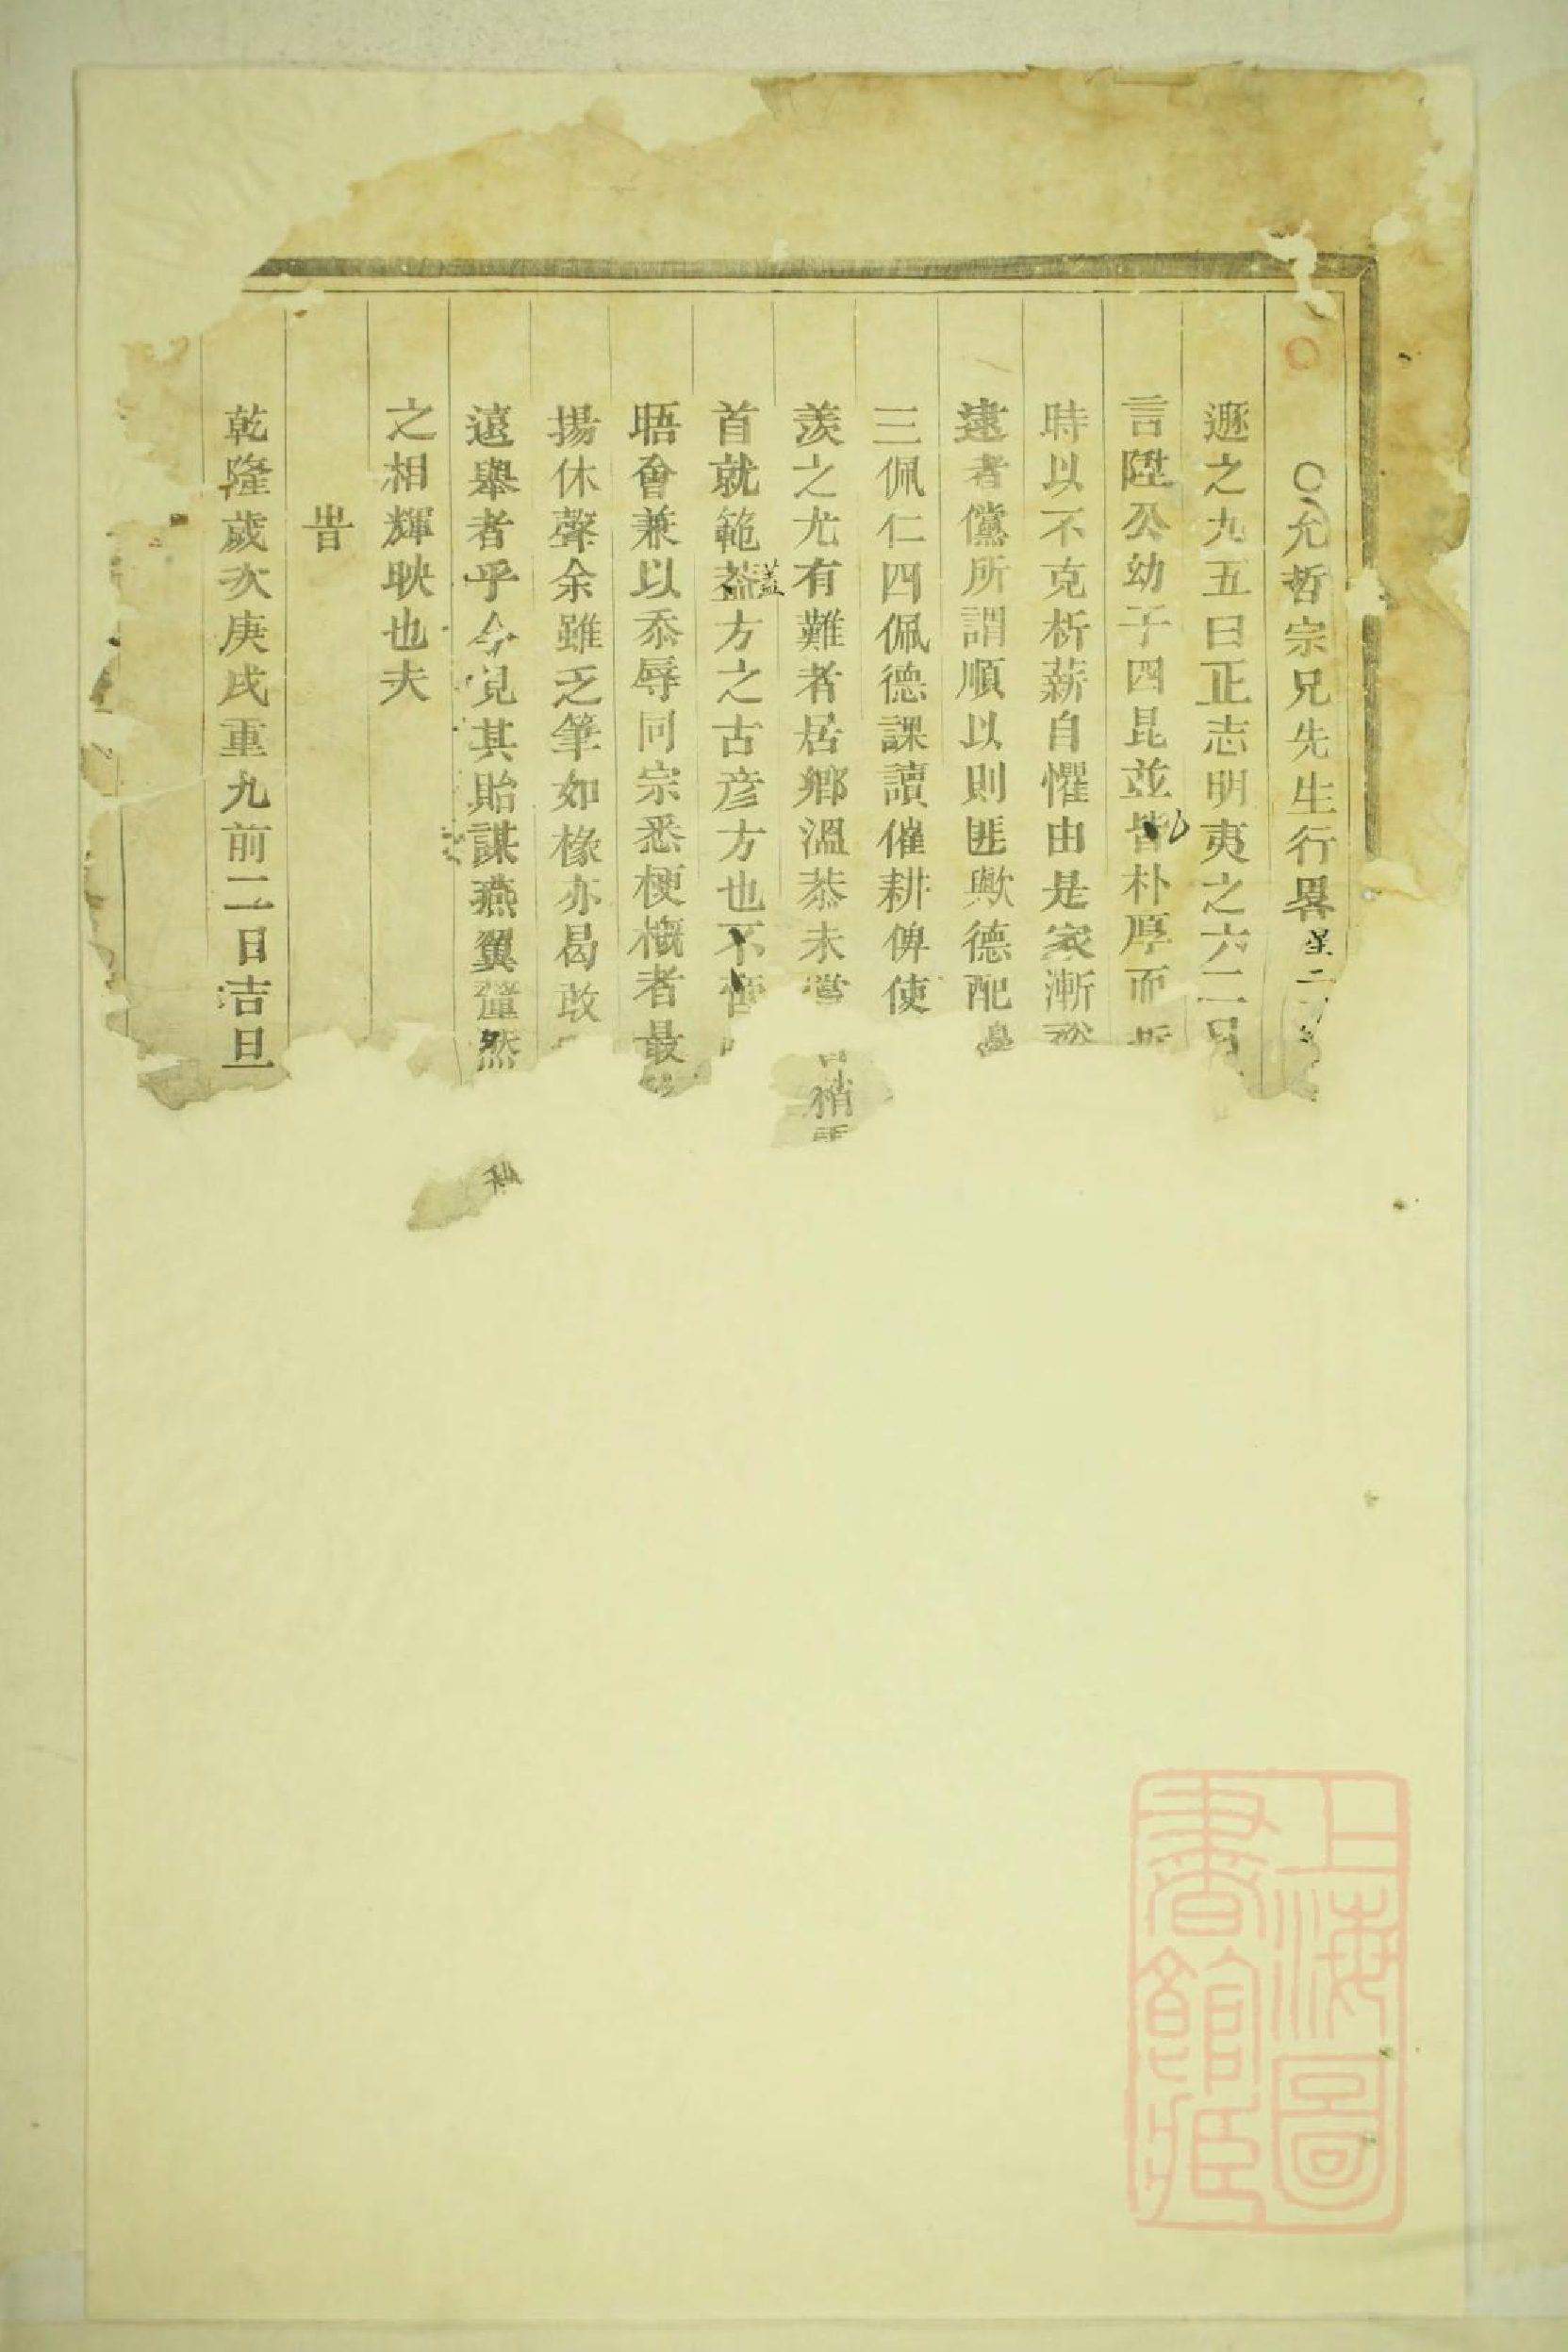 ○允哲宗兄先生行畧星二
遯之九五曰正志明夷之六二曰
言陞公幼子四昆並皆朴厚而
時以不克析薪自懼由是家漸裕
逮者儻所謂順以則匪歟德配
三佩仁四佩德課讀催耕俾使
羨之尤有難者居鄉溫恭未嘗 稍
首就範盖盖方之古彦方也不
晤會兼以忝辱同宗悉梗概者最
揚休聲余雖乏筆如椽亦曷敢
遠舉者乎今覓其貽謀燕翼 然
之相輝映也夫
旹
乾隆歲次庚戌重九前二日吉旦
上海圖書館藏